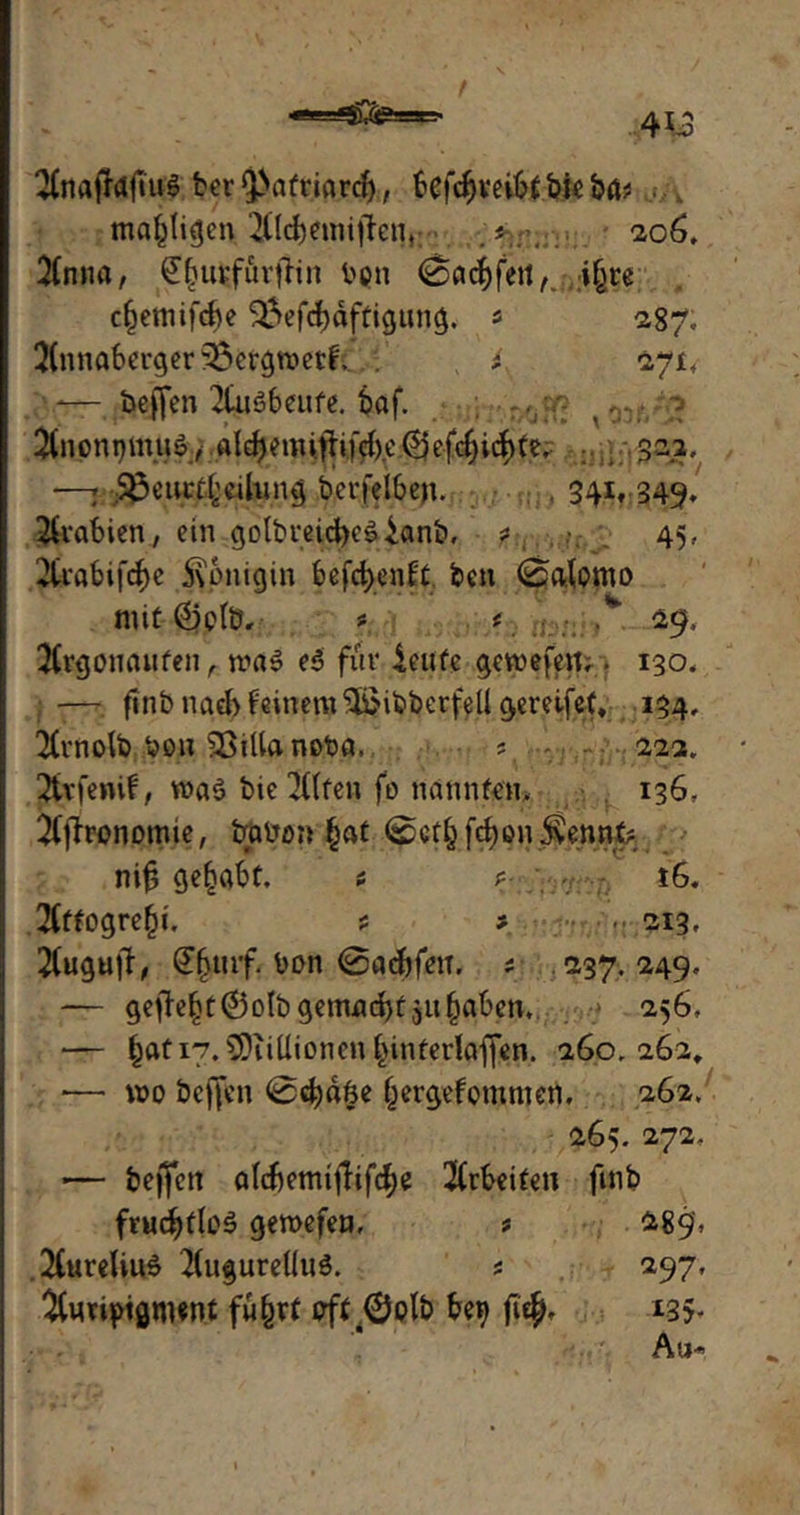 413
Anastasius der Patriarch, beschreibt die da=
mahligen Alchemisten, = 206.
Anna, Churfürstin von Sachsen, ihre
chemische Beschäftigung. = 287.
Annaberger Bergwerk. = 271.
— dessen Ausbeute. das.
Anonymus, alchemistische Geschichte, 322.
— Beurtheilung derselben. 341. 349.
Arabien, ein goldreiches Land. = 45.
Arabische Königin beschenkt den Salomo
mit Gold. = = 29.
Argonauten, was es für Leute gewesen. 130.
— sind nach keinem Widderfell gereiset. 134.
Arnold von Villa nova. = 222.
Arsenik, was die Alten so nannten. 136.
Astronomie, davon hat Seth schon Kennt=
niß gehabt. = = 16.
Attogrehi. = = 213.
August, Churf. von Sachsen. = 237. 249.
— gesteht Gold gemacht zu haben. 256.
— hat 17. Millionen hinterlassen. 260. 262.
— wo dessen Schätze hergekommen. 262.
265. 272.
— dessen alchemistische Arbeiten sind
fruchtlos gewesen. = 289.
Aurelius Augurellus. = 297.
Auripigment führt oft Gold bey sich. 135.
Au-